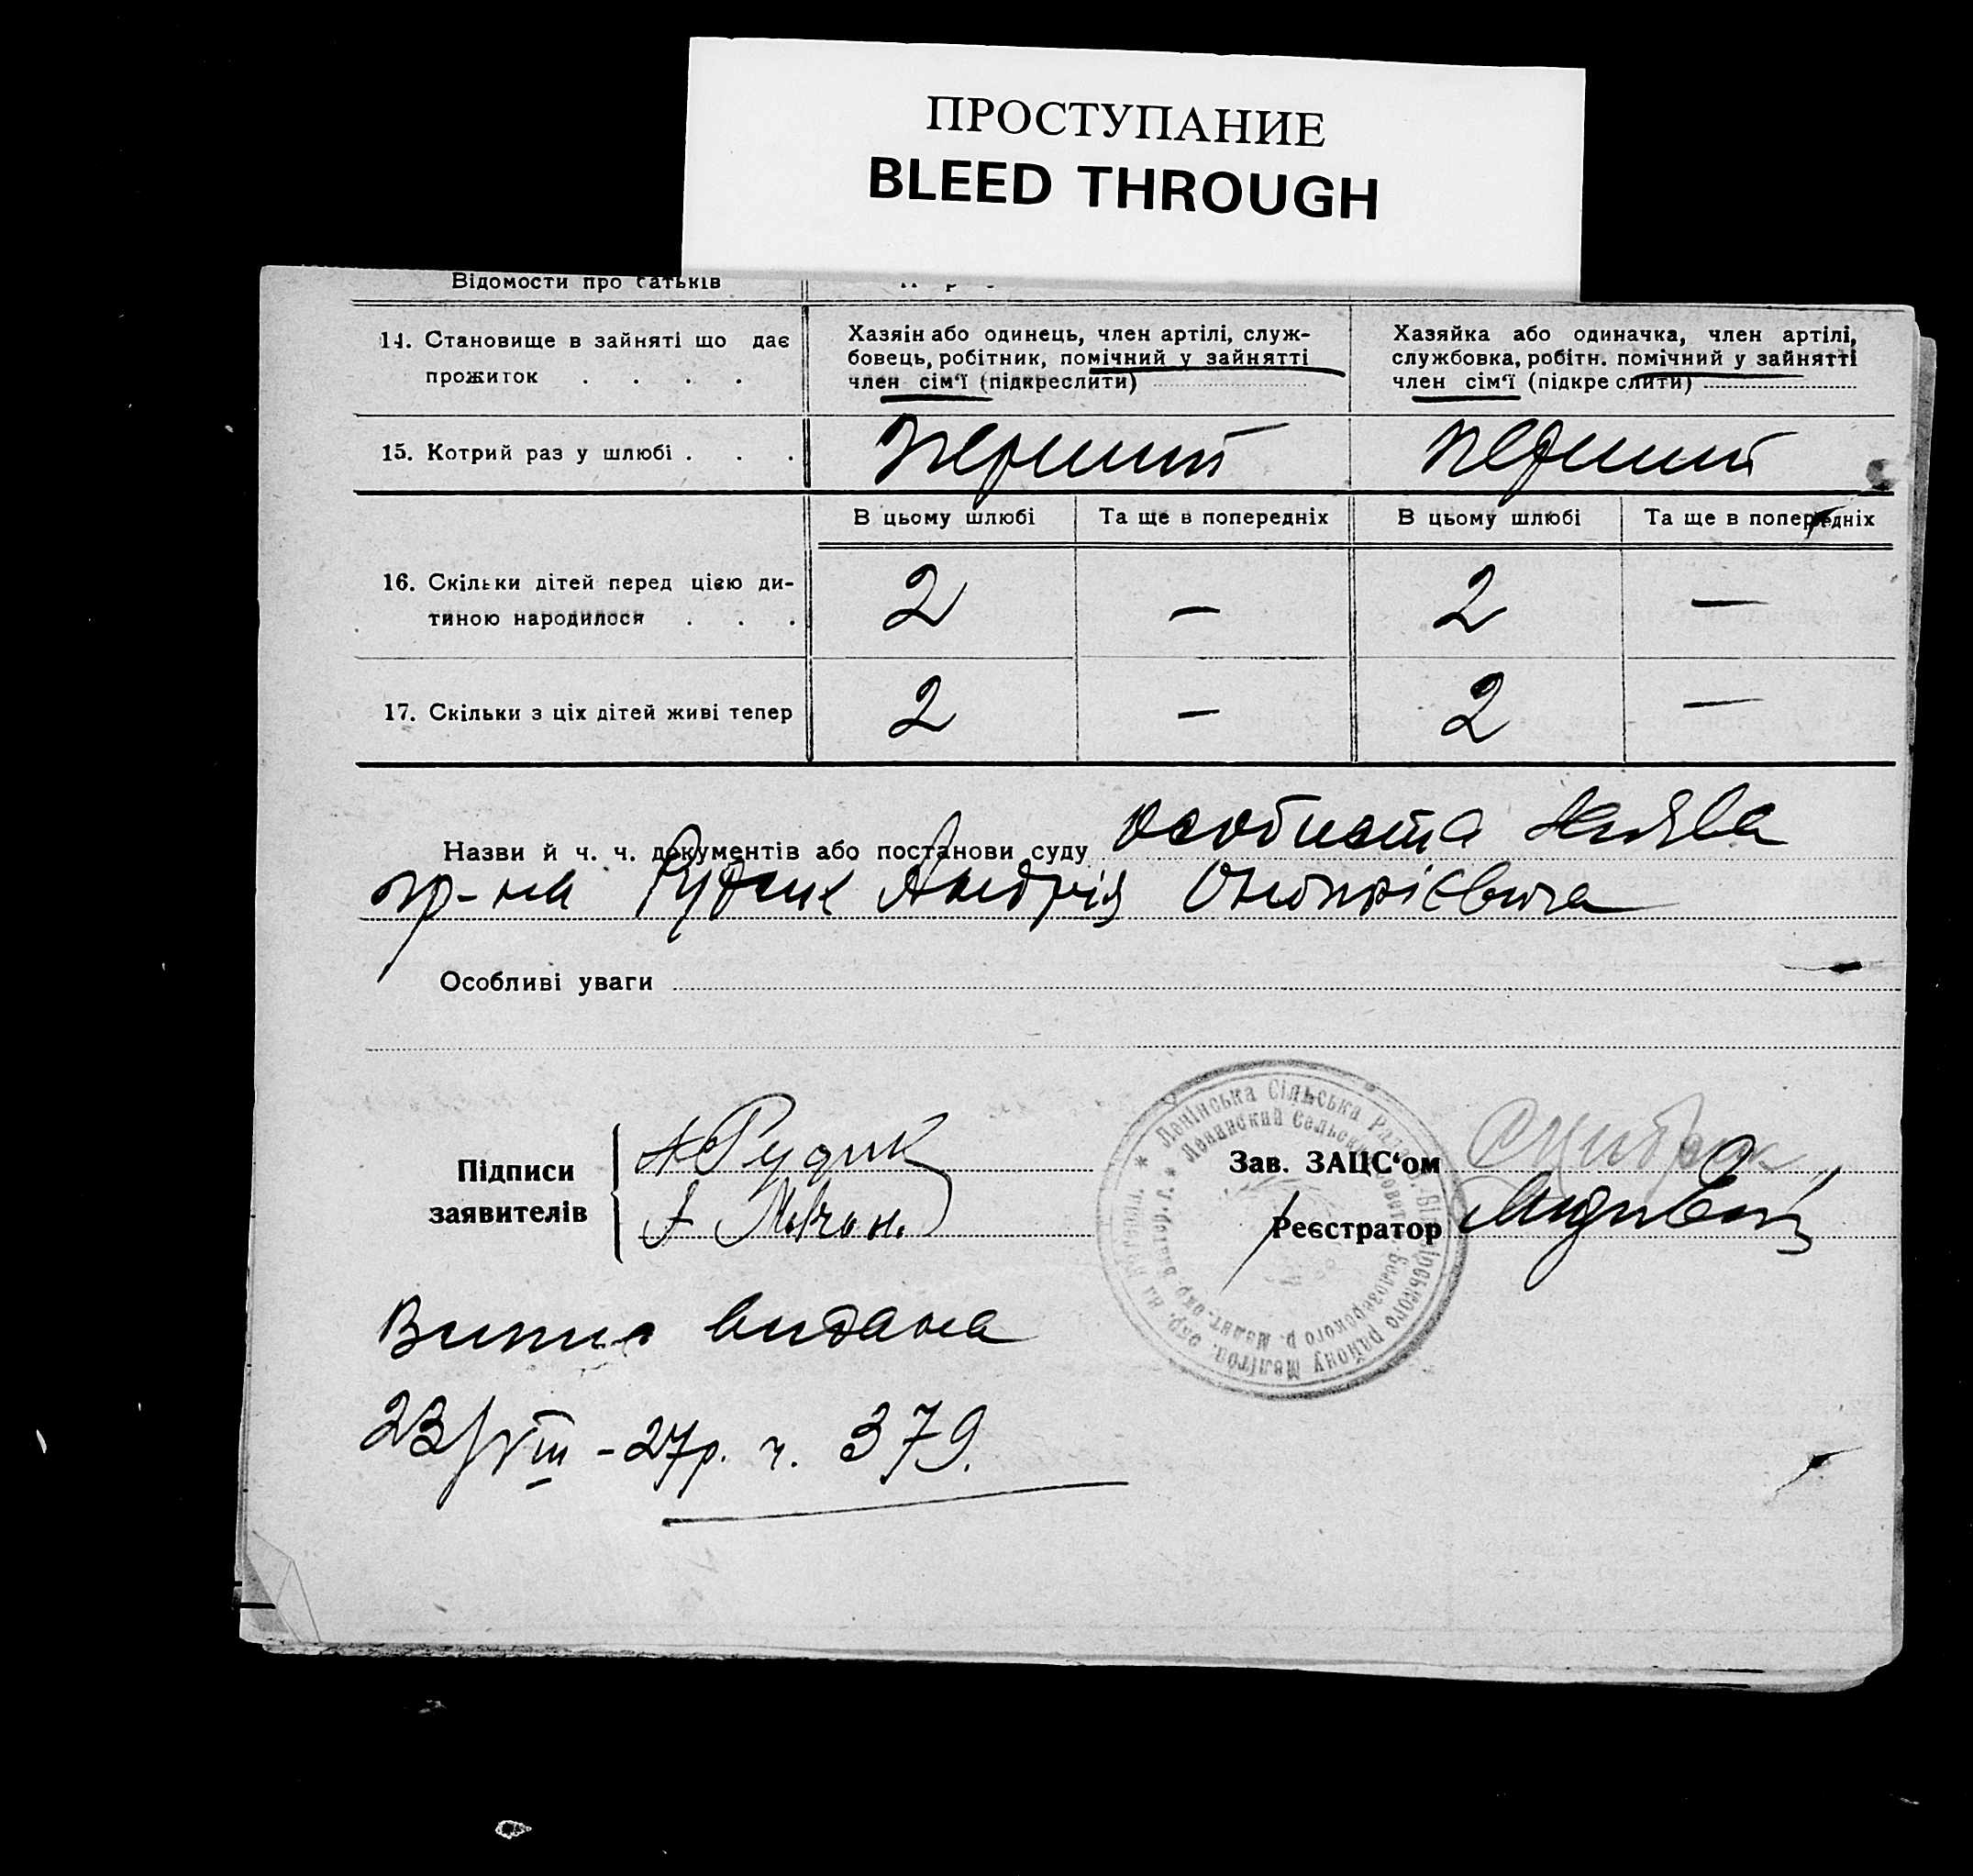 ПРОСТУПАНИЕ
BLEED THROUGH
Відомости про батьків
14. Становище в зайняті що дає прожиток . . . .
Хазяін або одинець, член артілі, служ-
бовець, робітник, помічний у зайнятті
член сім'ї (підкреслити)
Хазяйка або одиначка, член артілі,
службовка, робітн. помічний у зайнятті
член сім'ї (підкреслити)
15. Котрий раз у шлюбі . . .
перший
перший
В цьому шлюбі
Та ще в попередніх
В цьому шлюбі
Та ще в попередніх
16. Скільки дітей перед цією ди-
тиною народилося . . .
2 — 2 —
17. Скільки з ціх дітей живі тепер
2 — 2 —
Назви й ч. ч. документів або постанови суду особиста заява
гр-на Рудик Андрія Онопрієвича
Особливі уваги
Підписи
заявителів
А Рудик
Зав. ЗАЦС'ом
Реєстратор
Ленінська Сільська Рада Білозірського району
Ленинский Сельск Белозерского р.
Випис видана
23/VIII - 27р. ч. 379.